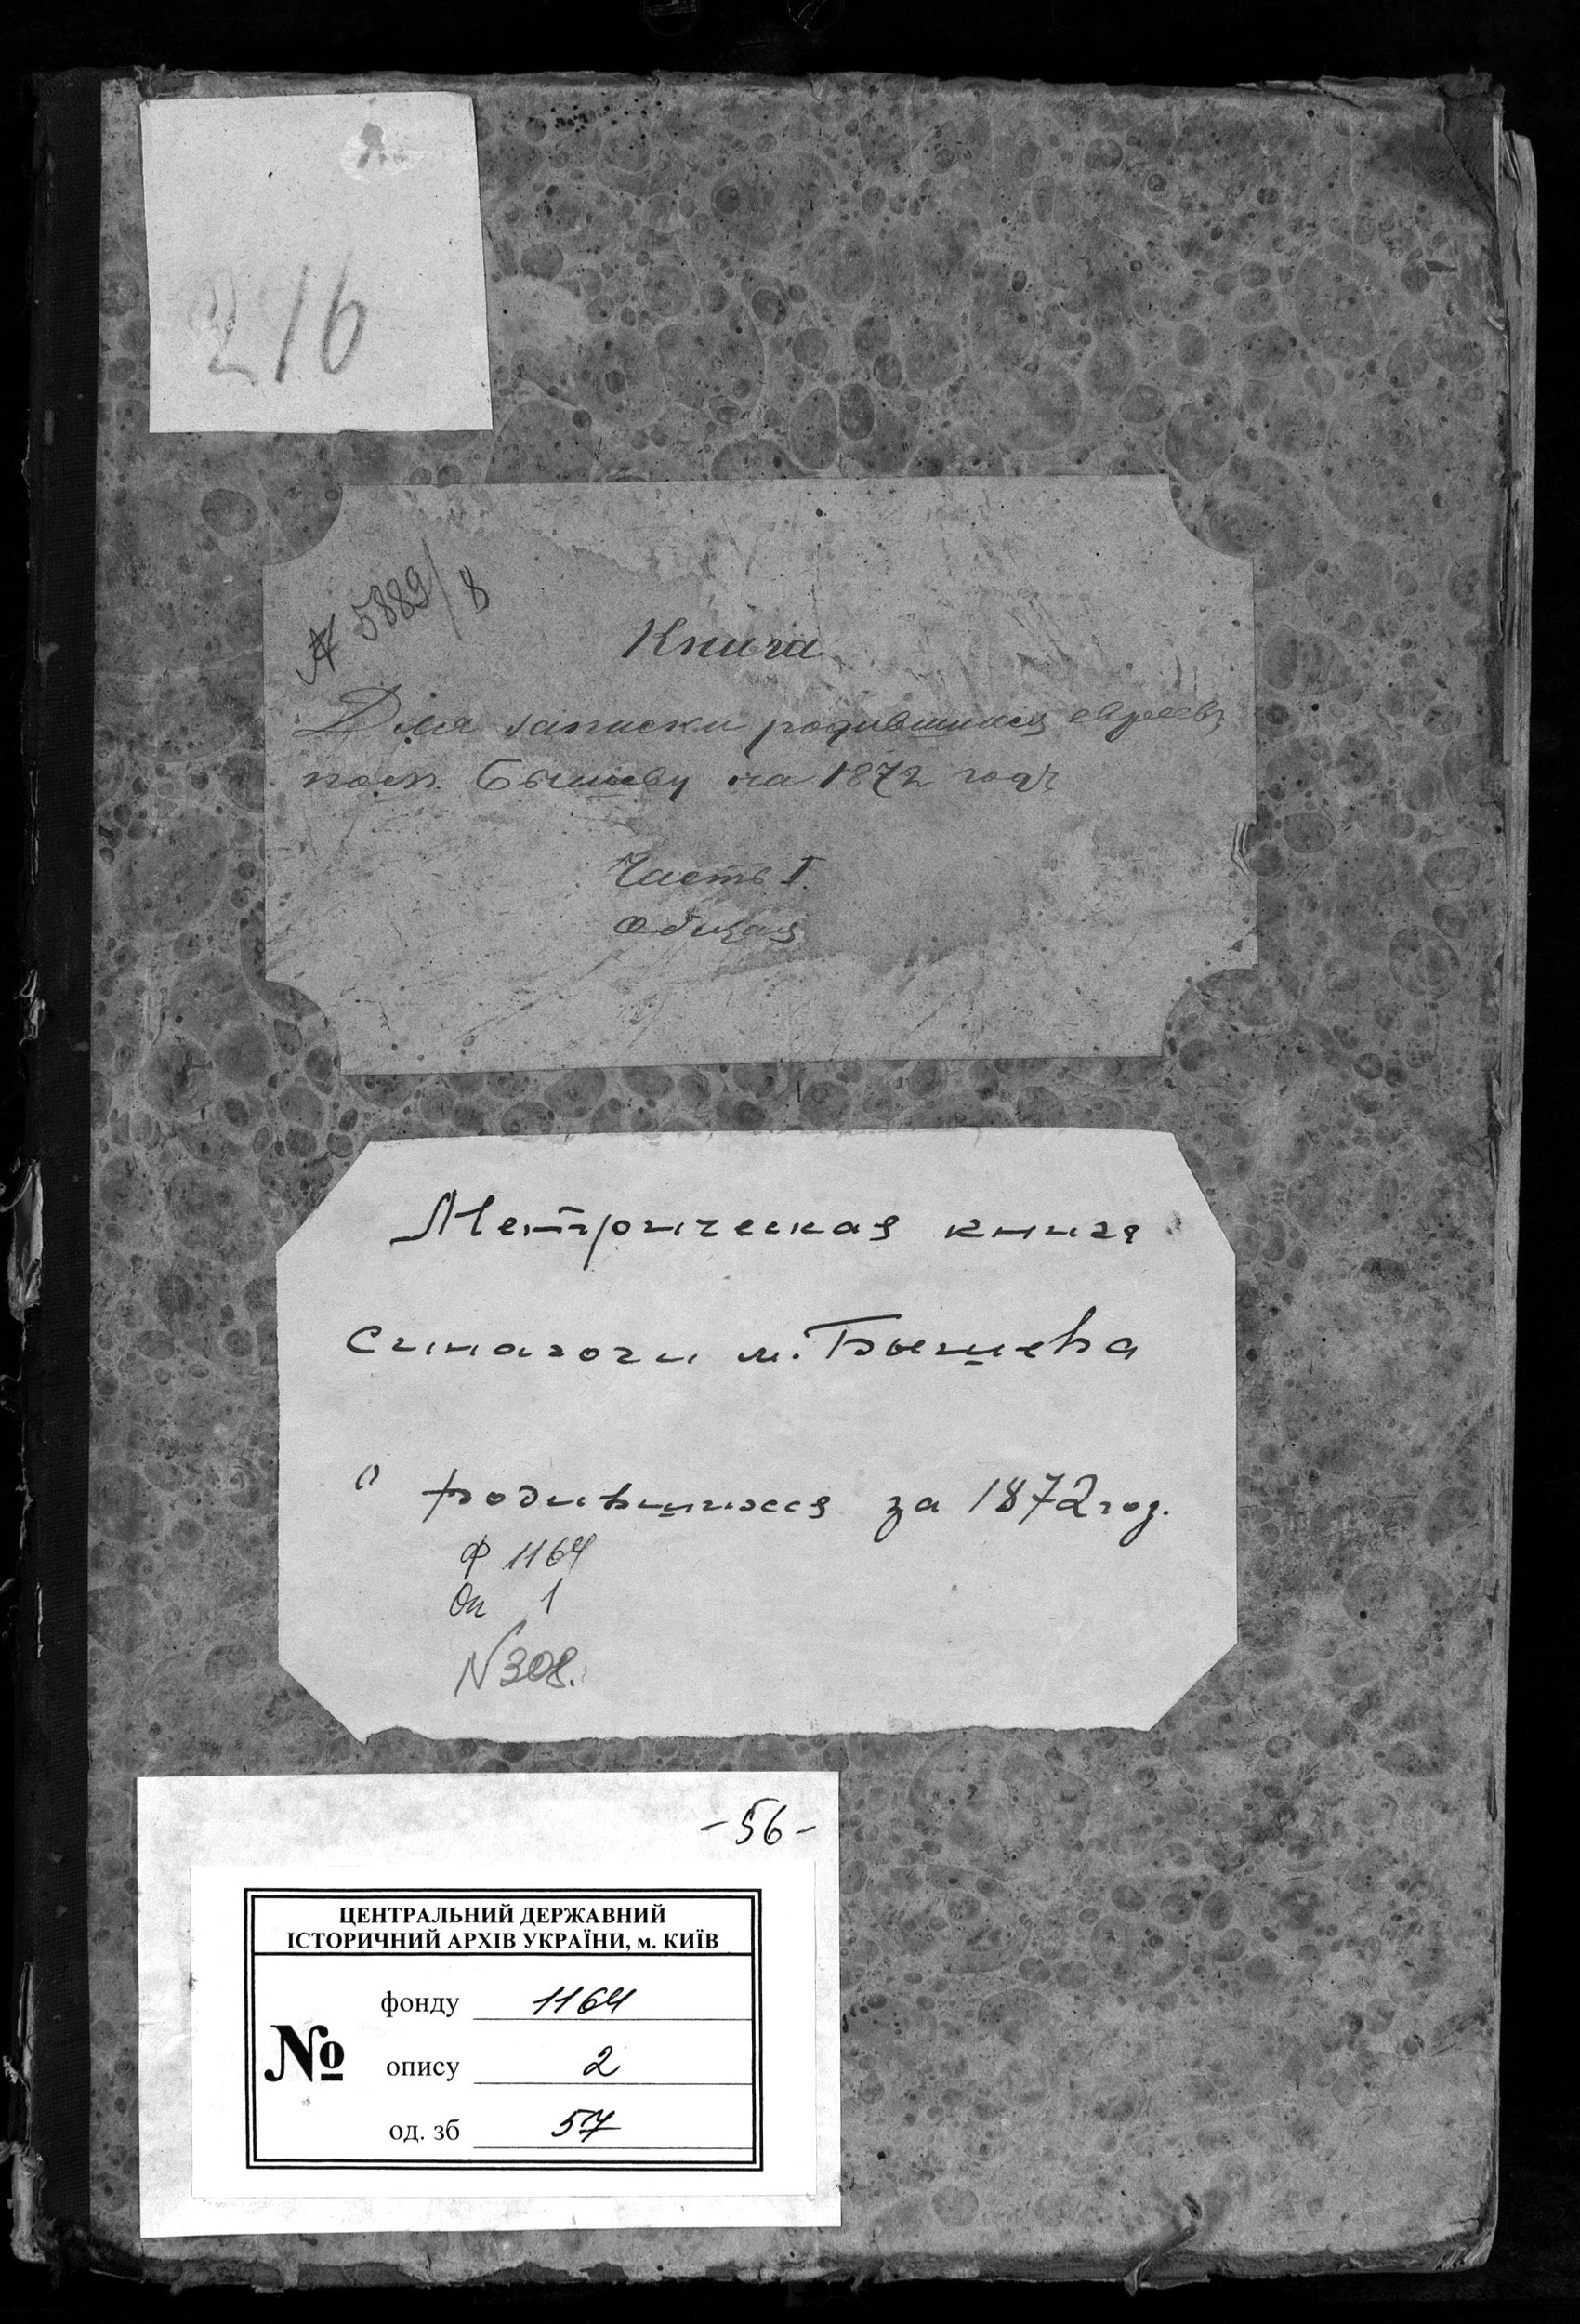 216
№ 5889/8
Книга
Для записки родившихся евреевъ
по м. Бышеву на 1872 годъ
Часть I
общая
Метрическая книга
Синагоги м. Бышева
о родившихся за 1872 год.
Ф 1164
Оп 1
N 308.
-56-
ЦЕНТРАЛЬНИЙ ДЕРЖАВНИЙ
ІСТОРИЧНИЙ АРХІВ УКРАЇНИ, м. КИЇВ
№
фонду 1164
опису 2
од. зб 57